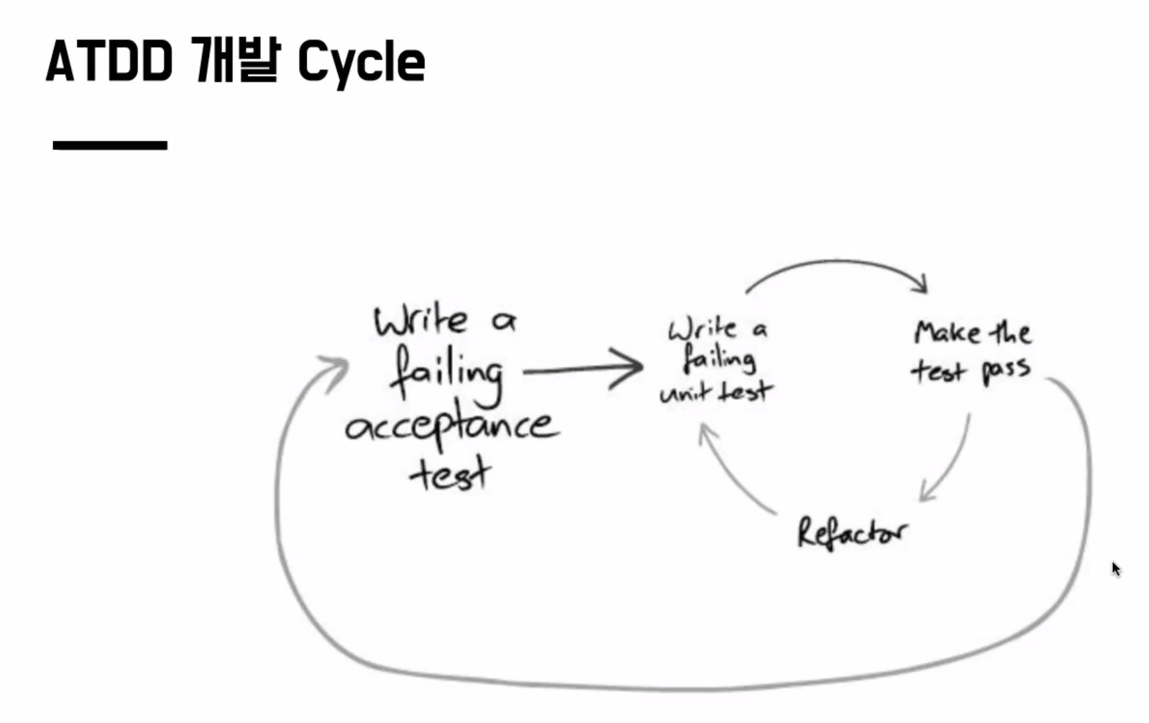 ATDD 개발 Cycle
Write a
failing
acceptance
test
Write a
failing
unit test
Make the
test pass
Refactor